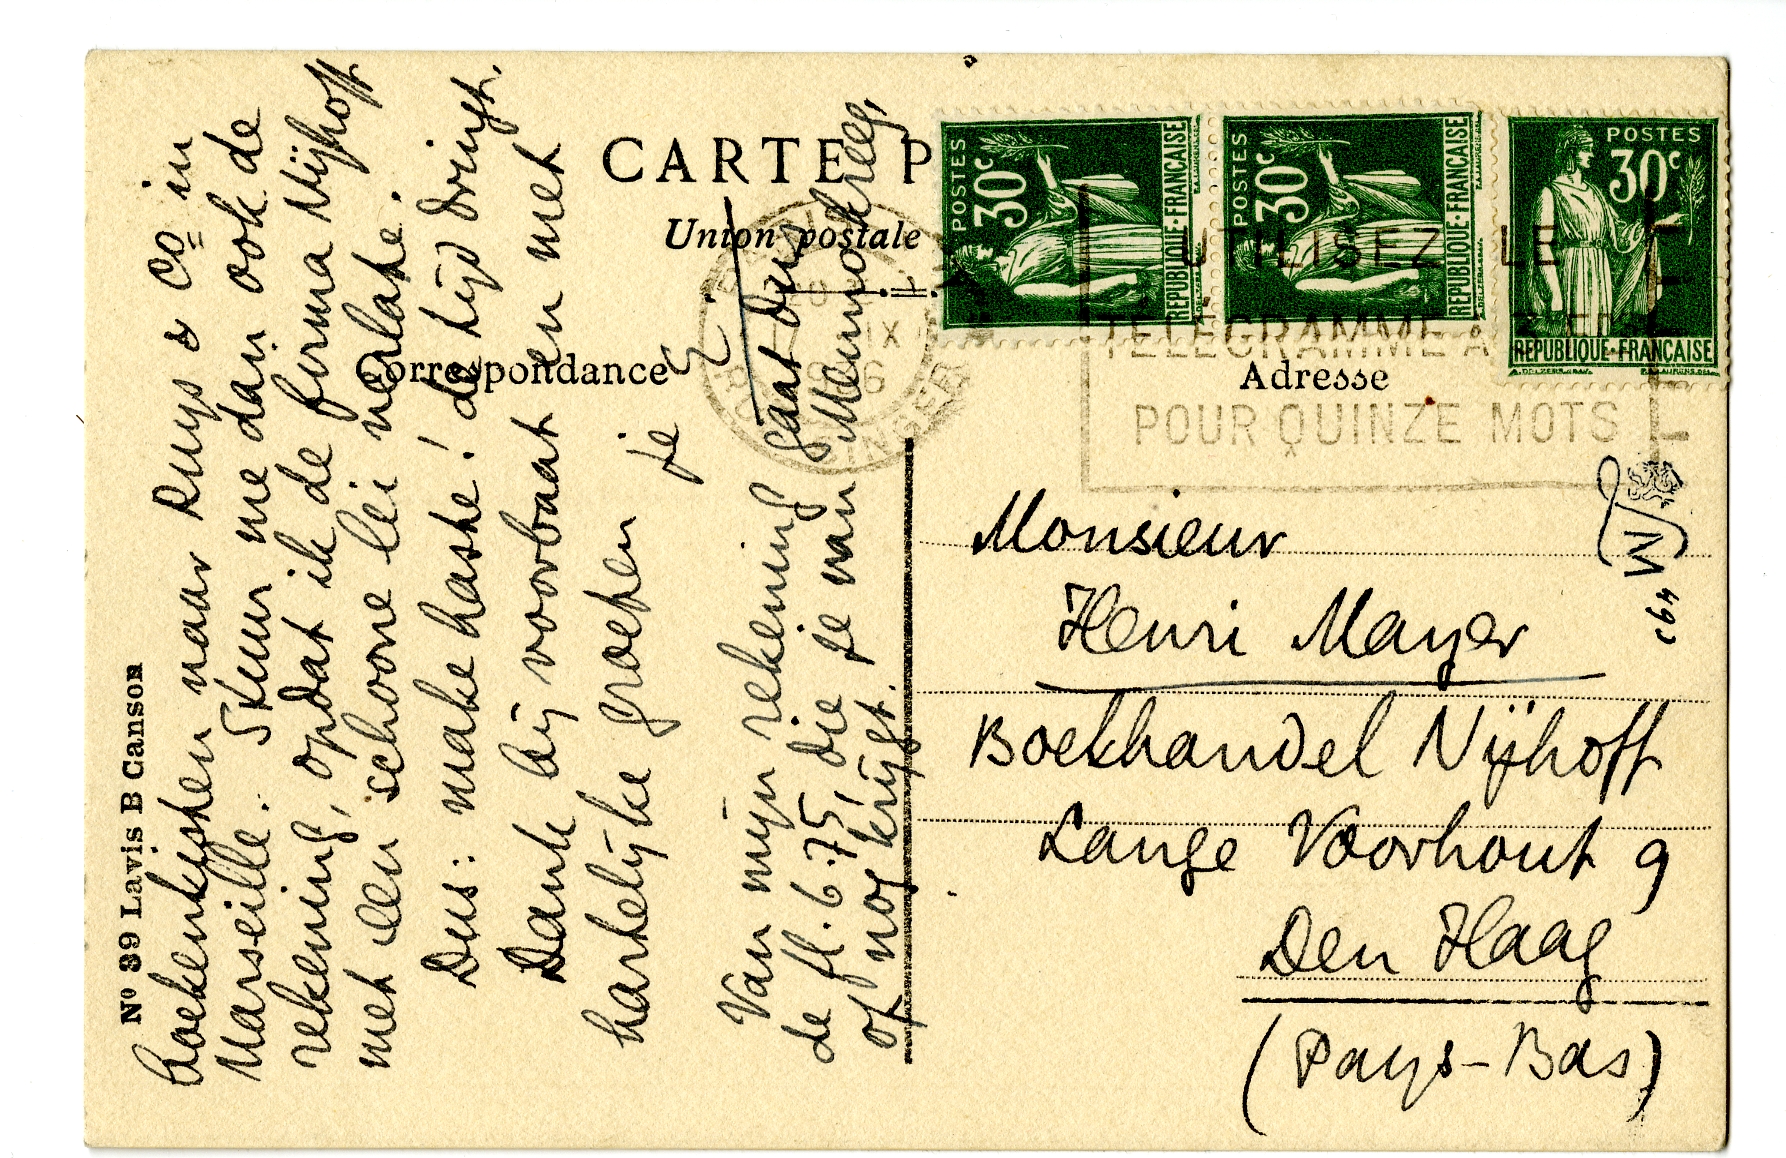 Nº 39 Lavis B Canson
boekenkisten naar Ruys & Co in
Marseille. Stuur me dan ook de
rekening, opdat ik de firma Nijhoff
met een schoone lei verlate.
Dus: make haste! de tijd dringt.
Dank bij voorbaat en met
hartelijke groeten
je
E.
Van mijn rekening gaat dus
de fl. 6.75, die je van Mermoz kreeg,
of nog krijgt.
CARTE P
Union postale
Correspondance
Adresse
POSTES
30c
REPUBLIQUE·FRANÇAISE
POSTES
30c
REPUBLIQUE·FRANÇAISE
POSTES
30c
REPUBLIQUE·FRANÇAISE
UTILISEZ LE
TELEGRAMME A
POUR QUINZE MOTS
Monsieur
Henri Mayer
Boekhandel Nijhoff
Lange Voorhout 9
Den Haag
(Pays-Bas)